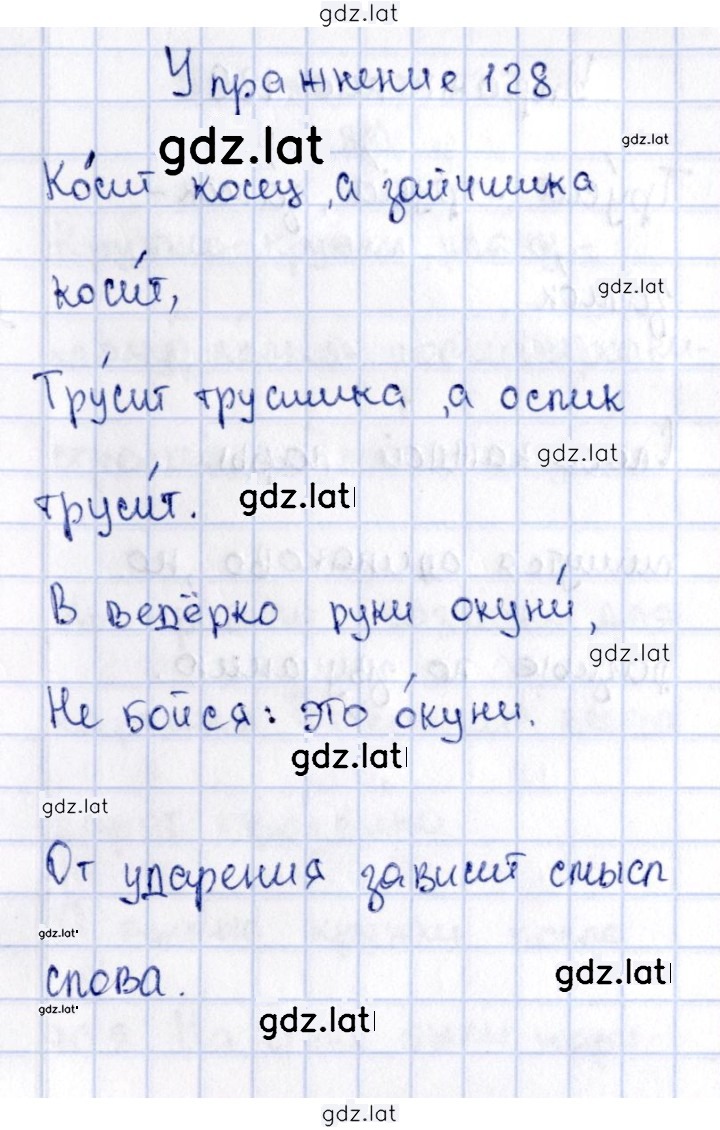 gdz.lat
Упражнение 128
gdz.lat
gdz.lat
Ко́сит косец, а зайчишка
gdz.lat
коси́т,
Тру́сит трусишка, а ослик
gdz.lat
gdz.lat
труси́т.
В ведёрко руки окуни́,
gdz.lat
Не бойся: это о́куни.
gdz.lat
gdz.lat
От ударения зависит смысл
gdz.lat
слова.
gdz.lat
gdz.lat
gdz.lat
gdz.lat